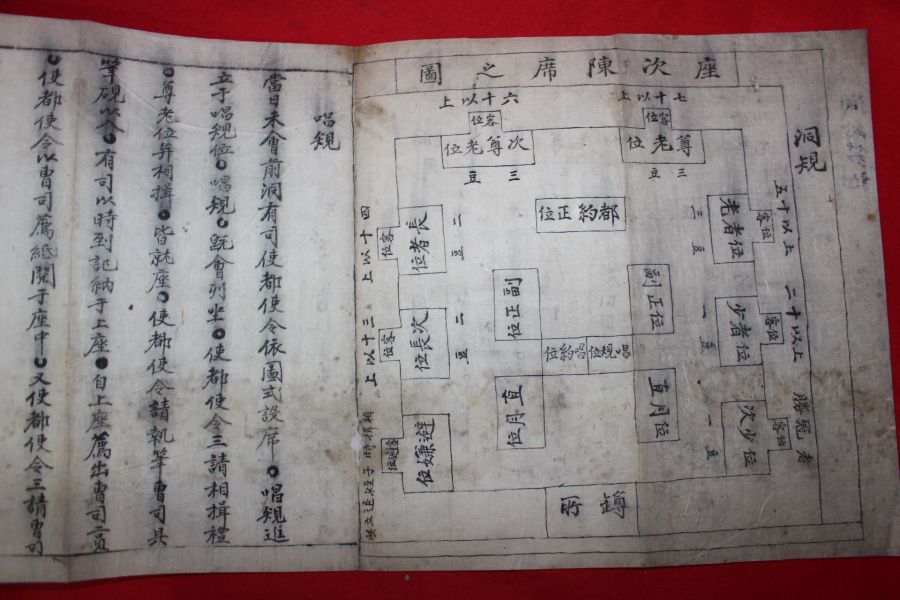 洞規
座次陳席之圖
七十以上
客位
尊老位
三豆
六十以上
客位
次尊老位
三豆
五十以上
客位
老者位
三豆
二十以上
客位
少者位
一豆
勝冠者
客位
次少位
一豆
都約正位
副正位
副正位
唱規位
唱約位
直月位
直月位
四十以上
客位
長者位
二豆
三十以上
客位
次長位
二豆
避嫌位
所
唱規
當日未會前洞有司使都使令依圖式設席●唱規進
立于唱規位●唱規●旣會列坐●使都使令三請相揖禮
●尊老位并相揖●皆就座●使都使令請執筆曹司具
筆硯以入●有司以時到記納于上座●自上座薦出曹司二員
●使都使令以曹司薦紙閱于座中●又使都使令三請曹司